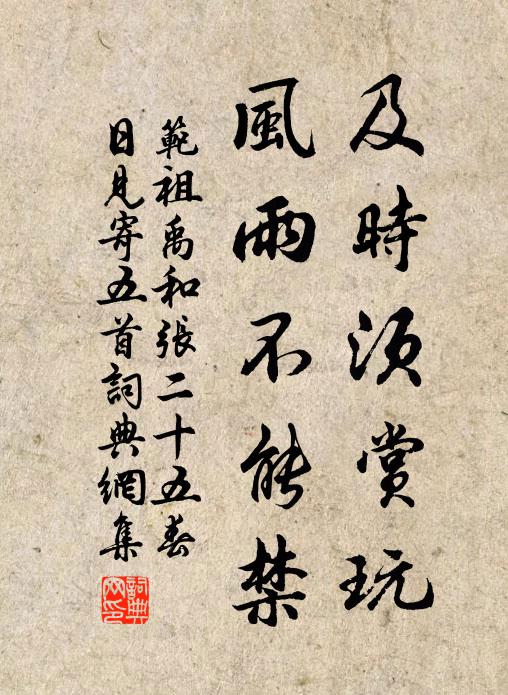 及時須賞玩
風雨不能禁
範祖禹和張二十五春
日見寄五首詞典網集
詞典網印